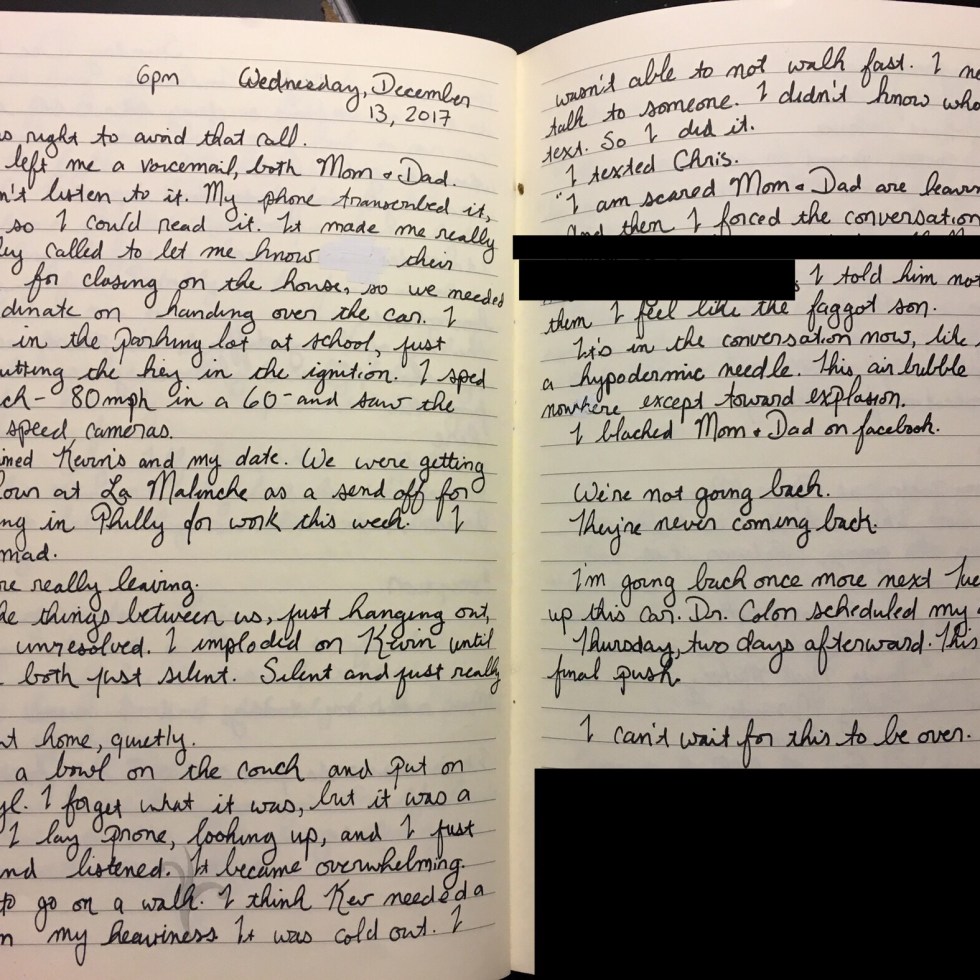 6pm Wednesday, December
13, 2017
right to avoid that call.
left me a voicemail, both Mom & Dad.
n't listen to it. My phone transcribed it,
so I could read it. It made me really
ey called to let me know their
for closing on the house, so we needed
dinate on handing over the car. I
in the parking lot at school, just
utting the key in the ignition. I sped
ch - 80mph in a 60 - and saw the
speed cameras.
ined Kevin's and my date. We were getting
at La Malinche as a send off for
ng in Philly for work this week. I
mad.
re really leaving.
things between us, just hanging out,
unresolved. I imploded on Kevin until
both just silent. Silent and just really
nt home, quietly.
a bowl on the couch and put on
yl. I forget what it was, but it was a
I lay prone, looking up, and I just
nd listened. It became overwhelming.
to go on a walk. I think Kev needed a
m my heaviness It was cold out. I
wasn't able to not walk fast. I ne
talk to someone. I didn't know who
text. So I did it.
I texted Chris.
"I am scared Mom & Dad are leavin
And then I forced the conversation
I told him not
them I feel like the faggot son.
It's in the conversation now, like
a hypodermic needle. This air bubble
nowhere except toward explosion.
I blocked Mom & Dad on facebook.
We're not going back.
They're never coming back.
I'm going back once more next Tue
up this car. Dr. Colon scheduled my
Thursday, two days afterward. This
final push.
I can't wait for this to be over.